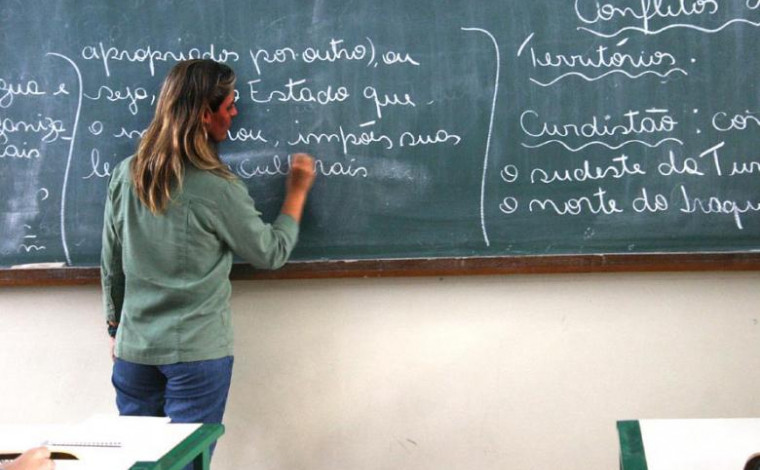 gua e
ganiza-
ais
apropriados por outro), ou
seja, o Estado que
o ou, impôs suas
culturais
Conflitos
Territórios.
Curdistão: con
o sudeste da Tur
o norte do Iraque